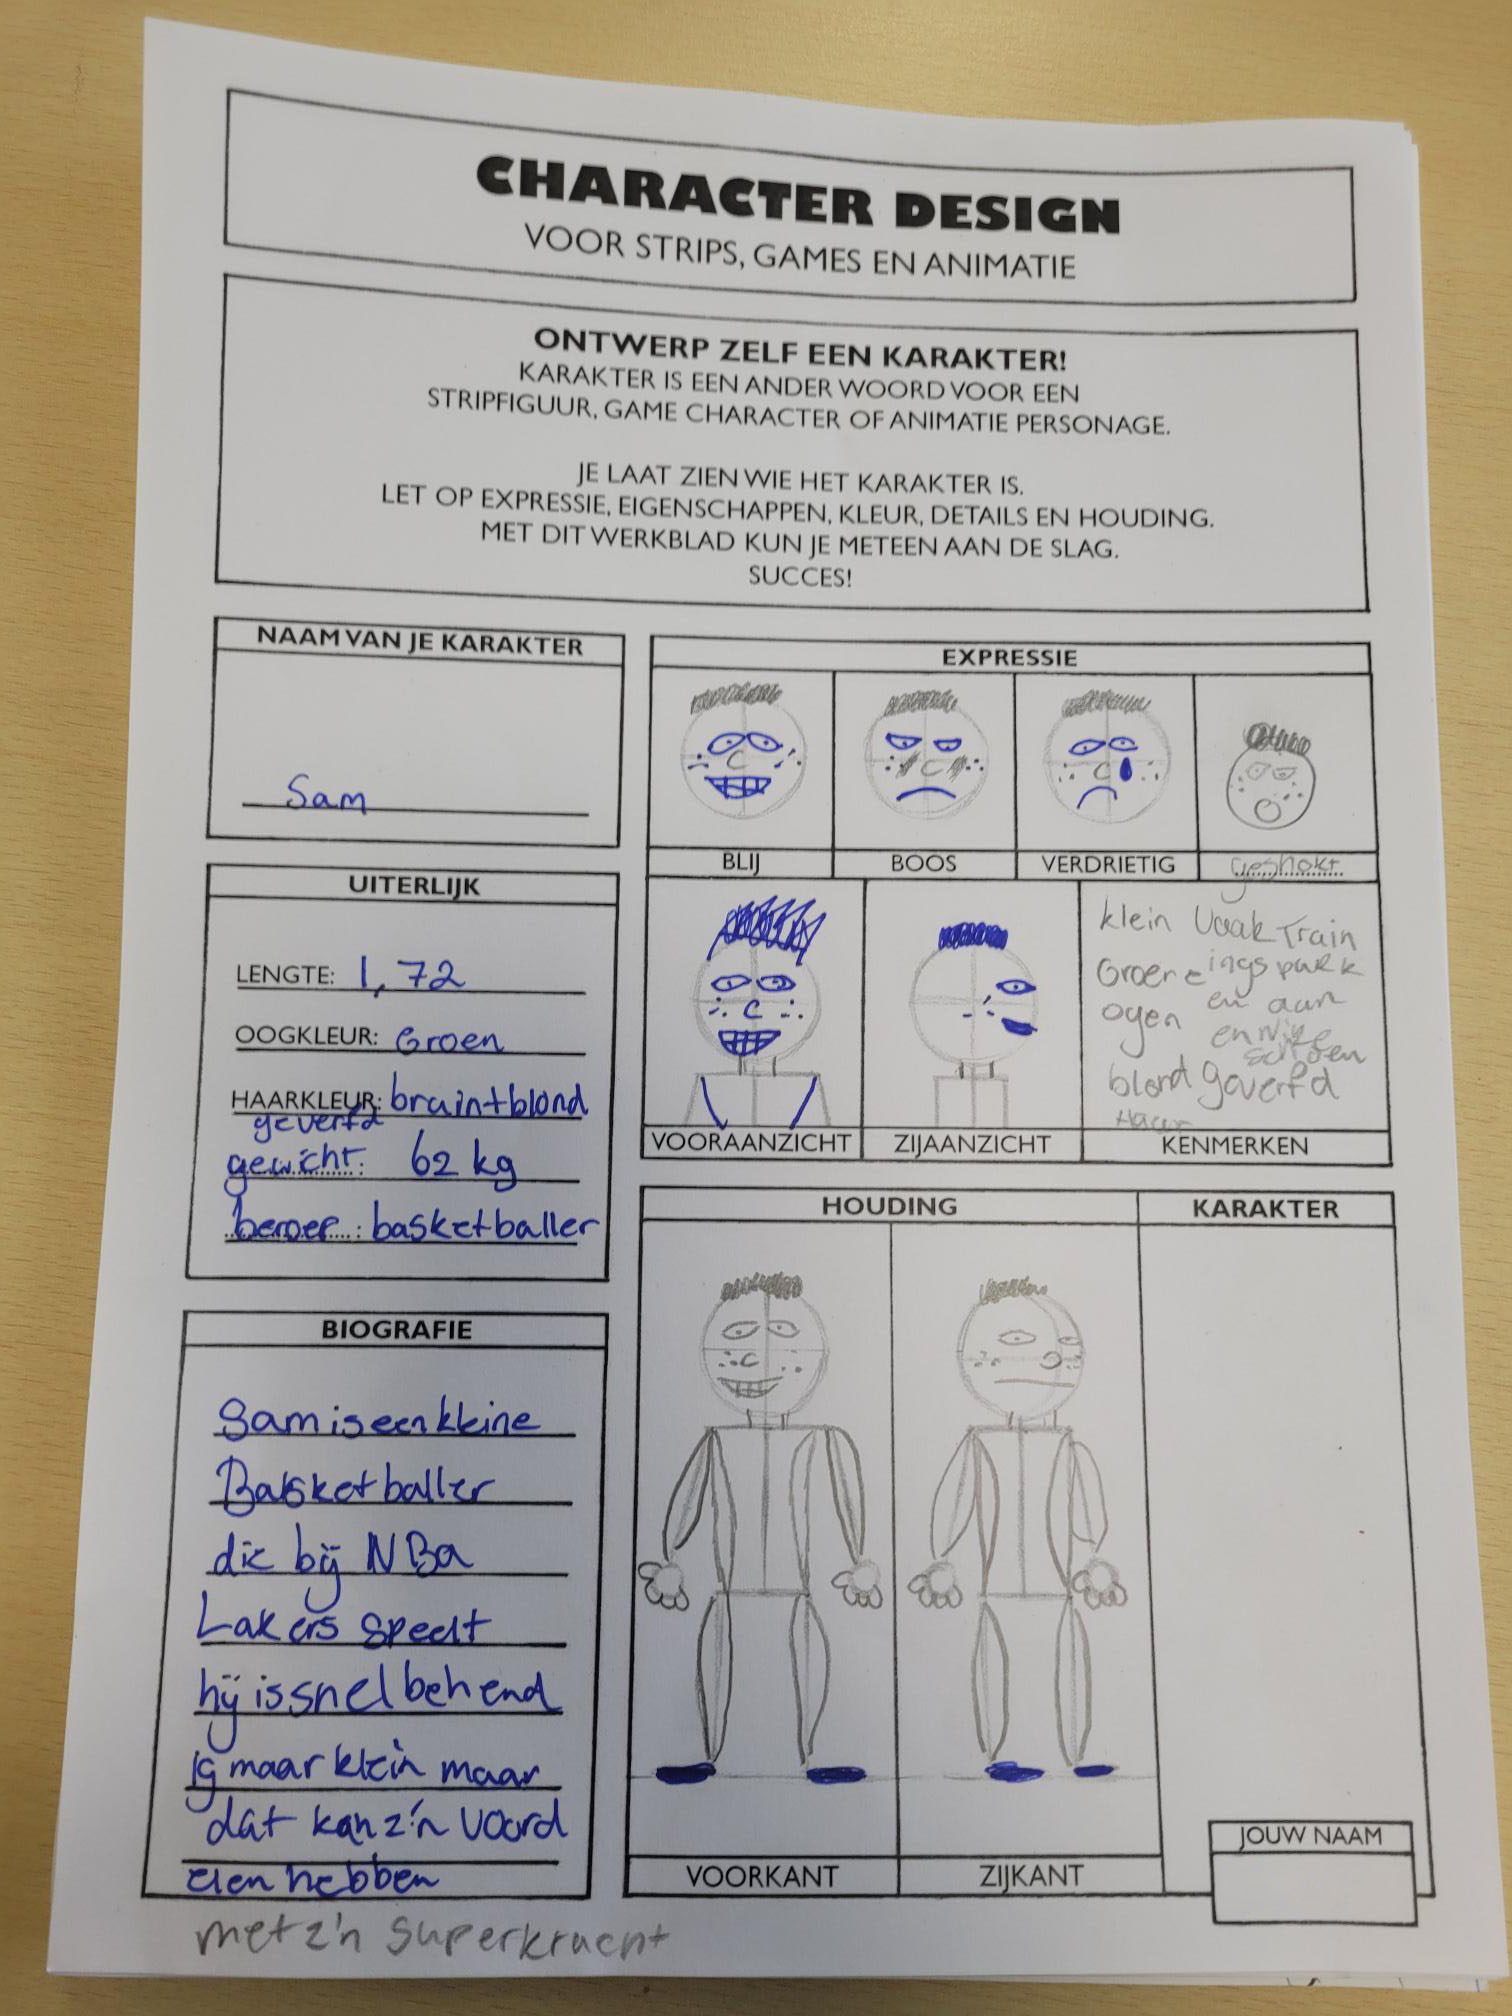 CHARACTER DESIGN
VOOR STRIPS, GAMES EN ANIMATIE
ONTWERP ZELF EEN KARAKTER!
KARAKTER IS EEN ANDER WOORD VOOR EEN
STRIPFIGUUR, GAME CHARACTER OF ANIMATIE PERSONAGE.
JE LAAT ZIEN WIE HET KARAKTER IS.
LET OP EXPRESSIE, EIGENSCHAPPEN, KLEUR, DETAILS EN HOUDING.
MET DIT WERKBLAD KUN JE METEEN AAN DE SLAG.
SUCCES!
NAAM VAN JE KARAKTER
Sam
UITERLIJK
LENGTE: 1,72
OOGKLEUR: Groen
HAARKLEUR: bruin+blond
geverfd
gewicht: 62 kg
beroep: basketballer
BIOGRAFIE
Sam is een kleine
Basketballer
die bij NBa
Lakers speelt
hij is snel behend
ig maar klein maar
dat kan z'n voord
elen hebben
met z'n superkracht
EXPRESSIE
BLIJ
BOOS
VERDRIETIG
geshokt
klein Vaak Train
Groene ings park
ogen en aan
en Nike
schoen
blond geverfd
Haar
VOORAANZICHT
ZIJAANZICHT
KENMERKEN
HOUDING
KARAKTER
VOORKANT
ZIJKANT
JOUW NAAM